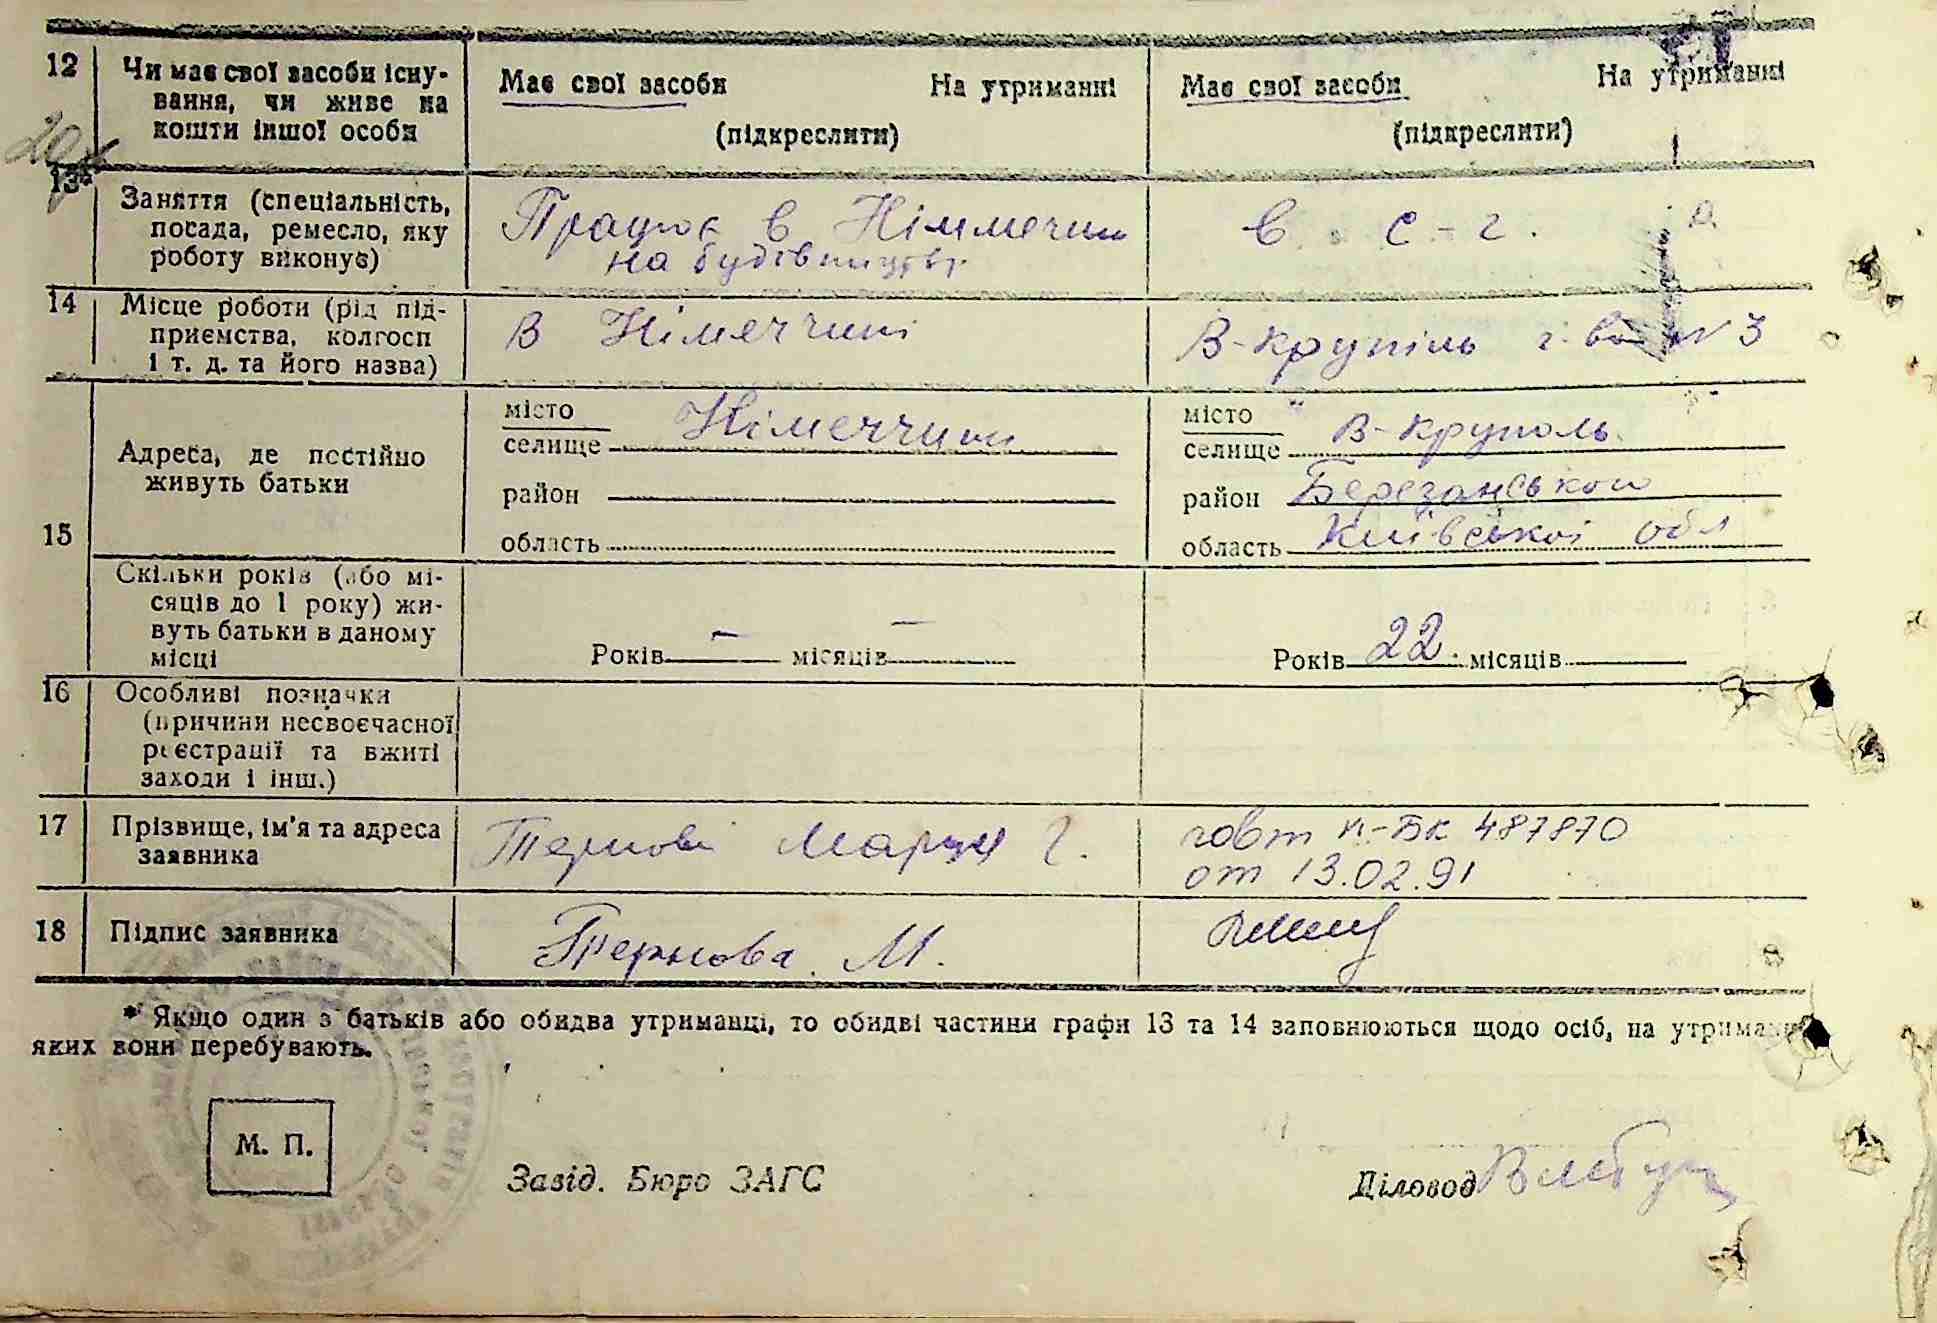 12 Чи має свої засоби існу-
вання, чи живе на
кошти іншої особи
Має свої засоби На утриманні
(підкреслити)
Має свої засоби На утриманні
(підкреслити)
13*
Заняття (спеціальність,
посада, ремесло, яку
роботу виконує)
Працює в Німмечині
на будівництві
в с-г.
14 Місце роботи (рід під-
приємства, колгосп
і т. д. та його назва)
В Німеччині
В-Крупіль г. во N 3
15
Адреса, де постійно
живуть батьки
місто
селище Німеччини
район
область
місто
селище В-Круполь
район Березанського
область Київської обл
Скільки років (або мі-
сяців до 1 року) жи-
вуть батьки в даному
місці
Років — місяців —
Років 22. місяців
16 Особливі позначки
(причини несвоєчасної
реєстрації та вжиті
заходи і інш.)
17 Прізвище, ім'я та адреса
заявника
Тернові Марии Г.
повт п-БК 487870
от 13.02.91
18 Підпис заявника
Тернова М.
* Якщо один з батьків або обидва утриманці, то обидві частини графи 13 та 14 заповнюються щодо осіб, на утриманні
яких вони перебувають.
М. П.
Завід. Бюро ЗАГС
Діловод